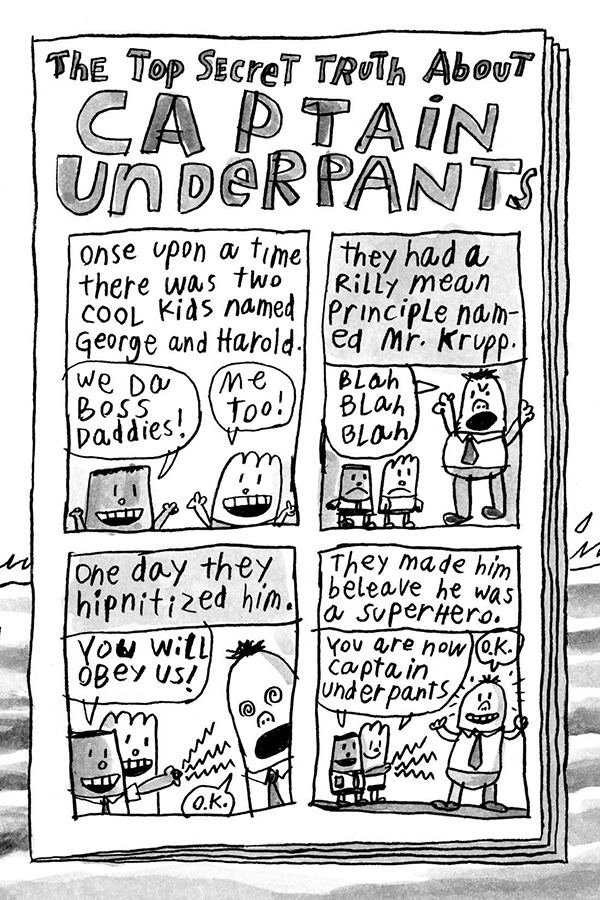 The Top Secret Truth About
Captain
Underpants
Onse upon a time
there was two
cool kids named
George and Harold.
We Da
Boss
Daddies!
Me
Too!
They had a
Rilly mean
Principle nam-
ed Mr. Krupp.
Blah
Blah
Blah
One day they
hipnitized him.
You will
obey us!
O.K.
They made him
beleave he was
a superhero.
You are now
captain
underpants
O.K.